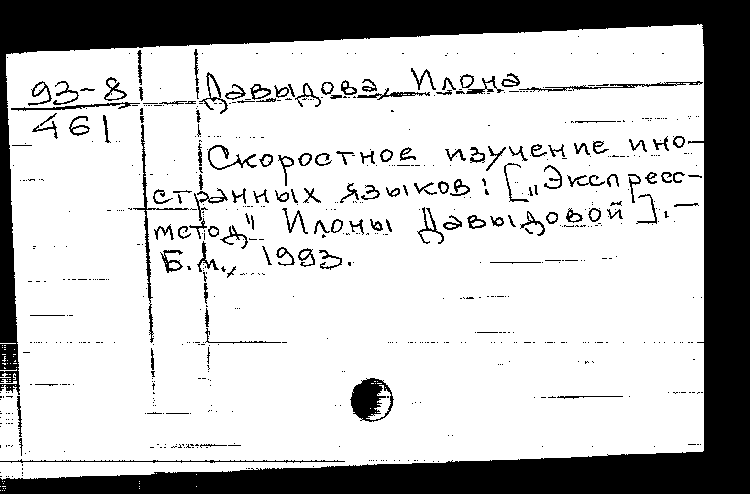 93-8
461
Давыдова, Илона
Скоростное изучение ино-
странных языков: [„Экспресс-
метод" Илоны Давыдовой]. -
Б.м., 1993.